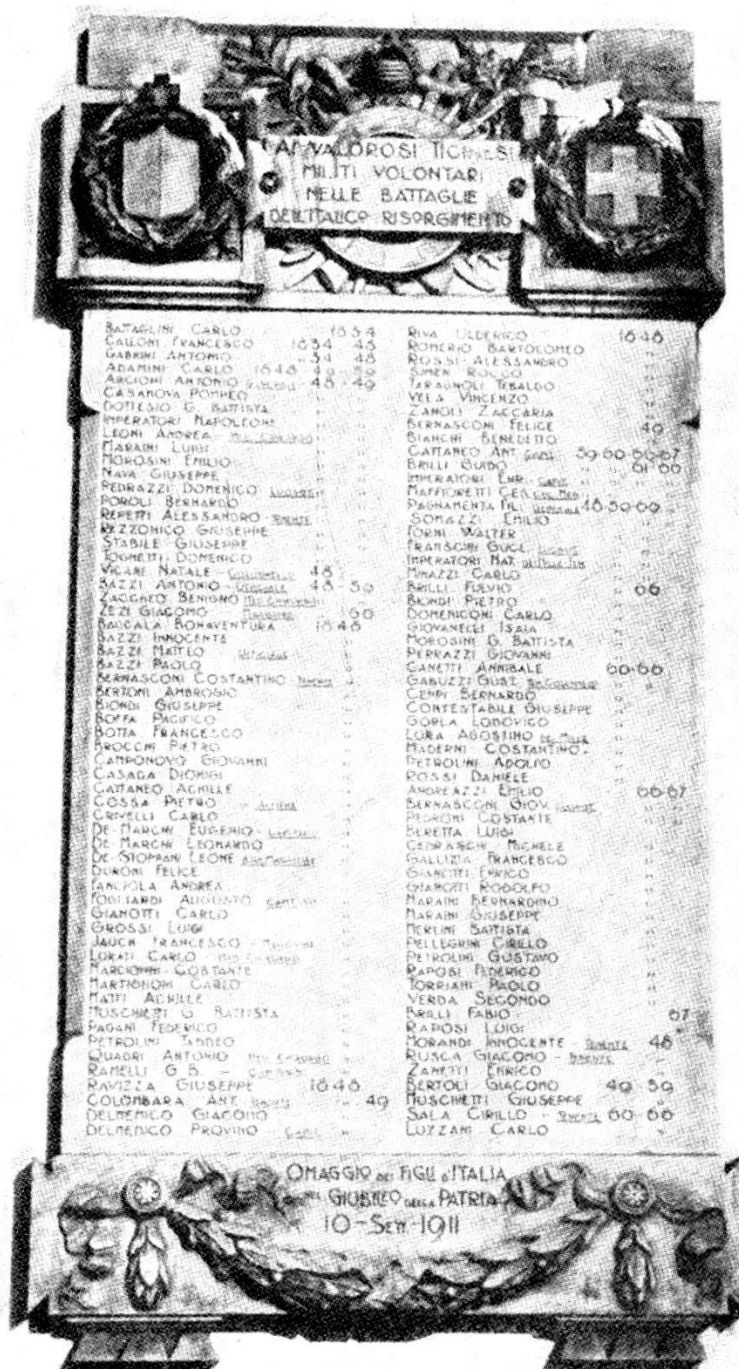 AI VALOROSI TICINESI
MILITI VOLONTARI
NELLE BATTAGLIE
DELL'ITALICO RISORGIMENTO
BATTAGLINI CARLO 1834
GALLONI FRANCESCO 1834 48
GABRINI ANTONIO " 34 48
ADAMINI CARLO 1848-49-59
ARCIONI ANTONIO GENERALE 48-49
CASANOVA POMPEO " "
DOTTESIO G. BATTISTA " "
IMPERATORI NAPOLEONE " "
LEONI ANDREA MED. CHIRURGO " "
MARAINI LUIGI " "
MOROSINI EMILIO " "
NAVA GIUSEPPE " "
PEDRAZZI DOMENICO " "
POROLI BERNARDO " "
REPETTI ALESSANDRO " "
REZZONICO GIUSEPPE " "
STABILE GIUSEPPE " "
TOGNETTI DOMENICO " "
VICARI NATALE COLONNELLO 48
BAZZI ANTONIO UFFICIALE 48-59
ZACCHEO BENIGNO MED. CHIRURGO "
ZEZI GIACOMO 60
BACCALA BONAVENTURA 1848
BAZZI INNOCENTE "
BAZZI MATTEO UFFICIALE "
BAZZI PAOLO "
BERNASCONI COSTANTINO "
BERTONI AMBROGIO "
BIONDI GIUSEPPE "
BOFFA PACIFICO "
BOTTA FRANCESCO "
BROCCHI PIETRO "
CAMPONOVO GIOVANNI "
CASAGA DIONIGI "
CATTANEO ACHILLE "
COSSA PIETRO "
CRIVELLI CARLO "
DE-MARCHI EUGENIO "
DE-MARCHI LEONARDO "
DE-STOPPANI LEONE "
DURONI FELICE "
FANCIOLA ANDREA "
FOGLIARDI AUGUSTO "
GIANOTTI CARLO "
GROSSI LUIGI "
JAUCH FRANCESCO "
LURATI CARLO - MED. CHIRURGO "
MARCIONNI COSTANTE "
MARTIGNONI CARLO "
MATTI ACHILLE "
MUSCHIETTI G. BATTISTA "
PAGANI FEDERICO "
PETROLINI TADDEO "
QUADRI ANTONIO MED. CHIRURGO "
RAMELLI G.B. "
RAVIZZA GIUSEPPE 1848
COLOMBARA ANT. " 49
DELMENICO GIACOMO "
DELMENICO PROVINO "
RIVA ULDERICO 1848
ROMERIO BARTOLOMEO "
ROSSI ALESSANDRO "
SIMEN ROCCO "
TARAGNOLI TEBALDO "
VELA VINCENZO "
ZANOLI ZACCARIA "
BERNASCONI FELICE 49
BIANCHI BENEDETTO "
CATTANEO ANT. 59-60-66-67
BRILLI GUIDO " 61-66
IMPERATORI ENR. "
MAFFIORETTI CES. "
PAGNAMENTA FIL. GENERALE 48-59-60 "
SOMAZZI EMILIO "
FORNI WALTER "
FRANSCINI GUGL. "
IMPERATORI NAT. DEI MILLE "
MINAZZI CARLO "
BRILLI FULVIO " 66
BIONDI PIETRO "
DOMENICONI CARLO "
GIOVANELLI ISAIA "
MOROSINI G. BATTISTA "
PERRAZZI GIOVANNI "
CANETTI ANNIBALE 60-66
GABUZZI GUST. "
CENPI BERNARDO "
CONTESTABILE GIUSEPPE "
GORLA LODOVICO "
LURA AGOSTINO DEI MILLE "
MADERNI COSTANTINO "
PETROLINI ADOLFO "
ROSSI DANIELE "
ANDREAZZI EMILIO 66-67
BERNASCONI GIOV. " "
PEDRONI COSTANTE " "
BERETTA LUIGI "
CEDRASCHI MICHELE "
GALLIZIA FRANCESCO "
GIANOTTI ENRICO "
GIANOTTI RODOLFO "
MARAINI BERNARDINO "
MARAINI GIUSEPPE "
MERLINI BATTISTA "
PELLEGRINI CIRILLO "
PETROLINI GUSTAVO "
RAPOSI FEDERICO "
TORRIANI PAOLO "
VERDA SECONDO "
BRILLI FABIO 67
RAPOSI LUIGI "
MORANDI INNOCENTE - TENENTE 48
RUSCA GIACOMO - TENENTE "
ZANETTI ENRICO "
BERTOLI GIACOMO 49 59
MUSCHIETTI GIUSEPPE "
SALA CIRILLO - TENENTE 60-66
LUZZANI CARLO "
OMAGGIO DEI FIGLI D'ITALIA
NEL GIUBILEO DELLA PATRIA
10-SETT-1911